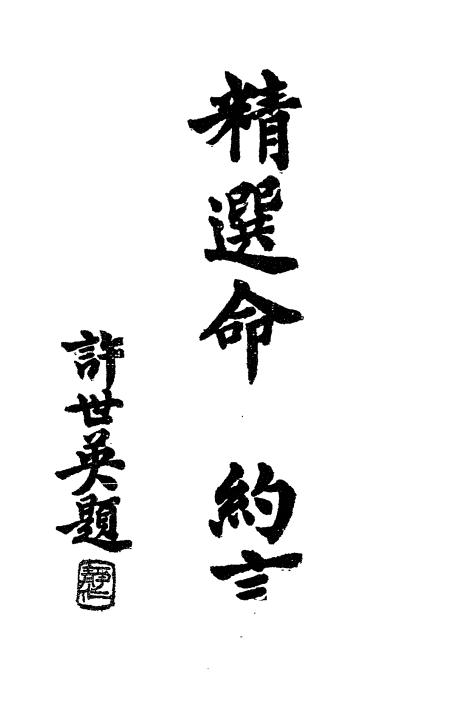 精選命 約言
許世英題
靜仁